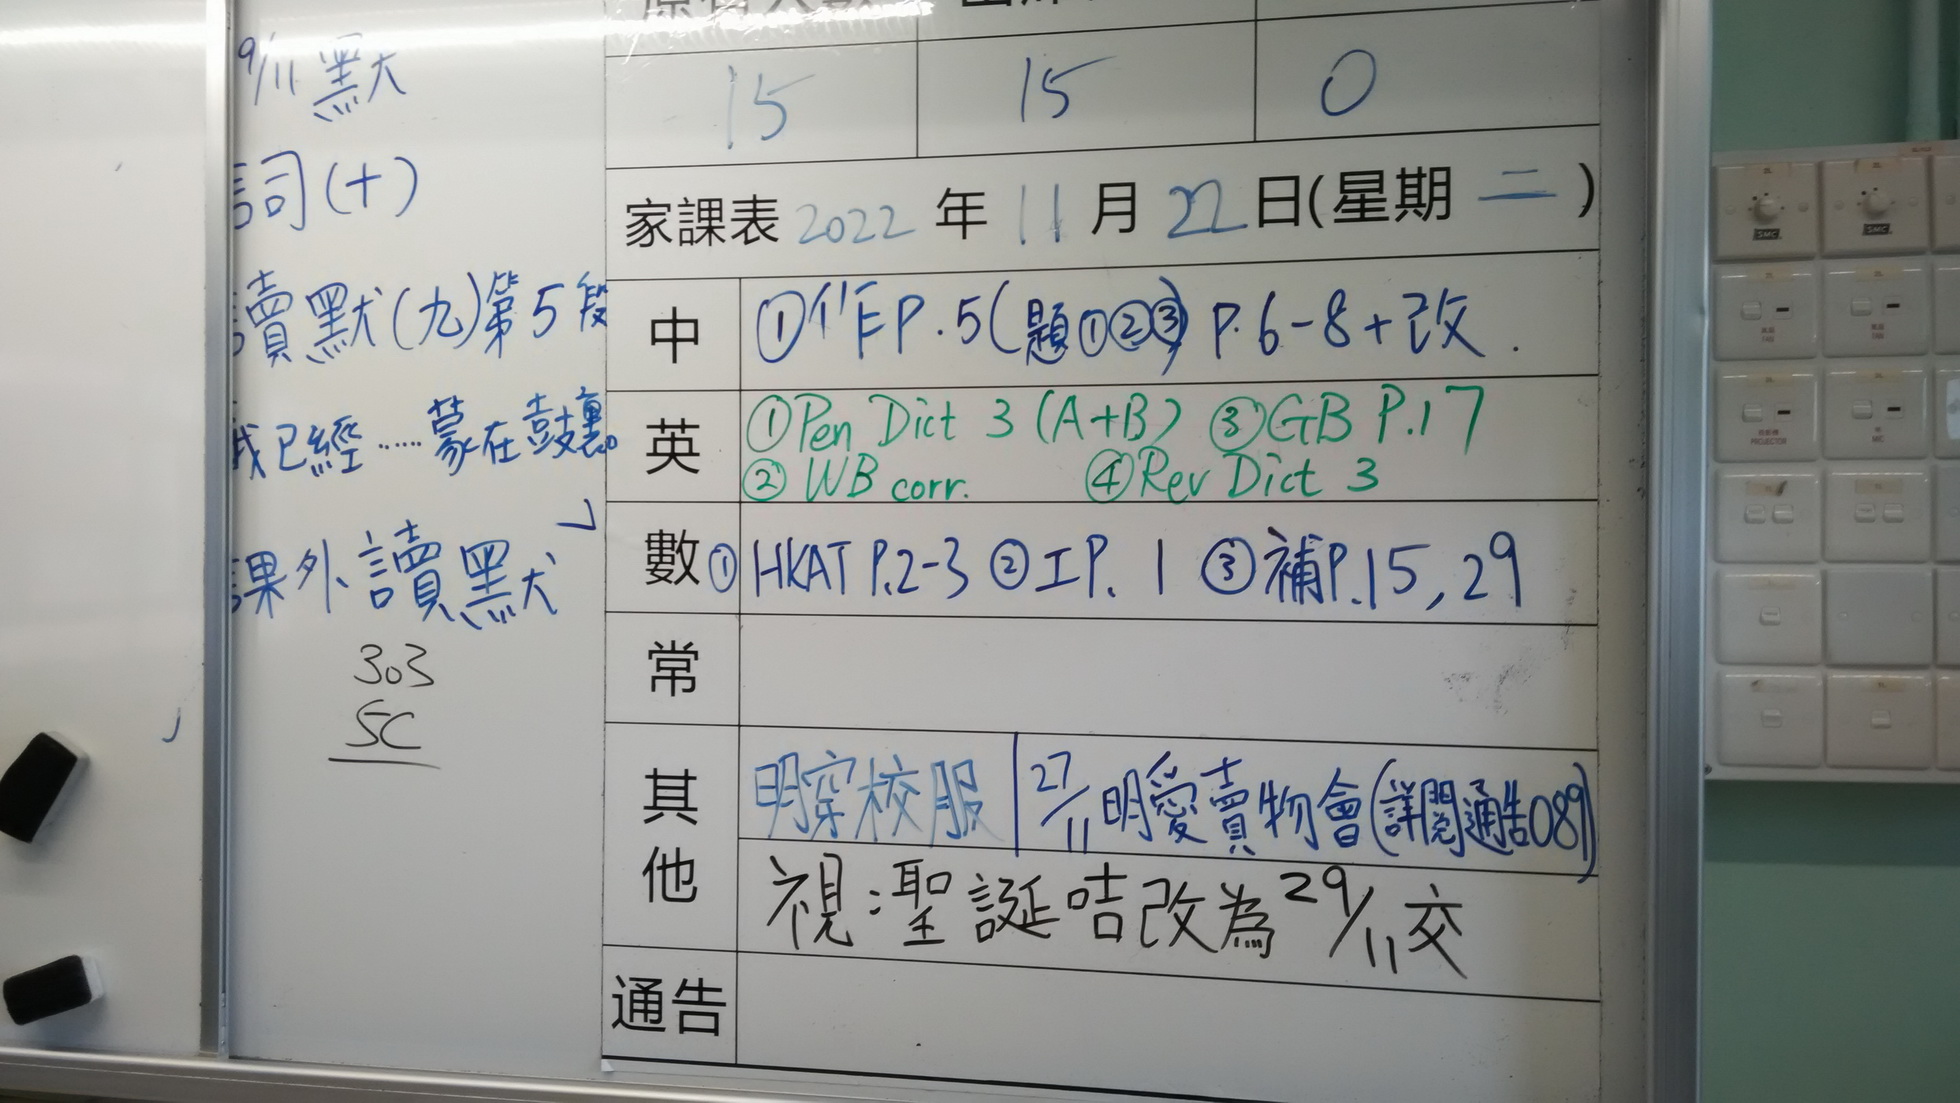 9/11 默
詞(十)
讀默(九)第5段
我已經……蒙在鼓裏。
」
課外讀默
303
5C
15 15 0
家課表 2022 年 11 月 22 日(星期 二 )
中 ①作P.5(題①②③) P.6-8+改.
英 ①Pen Dict 3 (A+B) ③GB P.17
②WB corr. ④Rev Dict 3
數 ①HKAT P.2-3 ②工P.1 ③補P.15,29
常
其他 明穿校服 | 27/11 明愛賣物會(詳閱通告089)
視:聖誕咭改為29/11交
通告
SMC
SMC
FAN
FAN
PROJECTOR
MIC